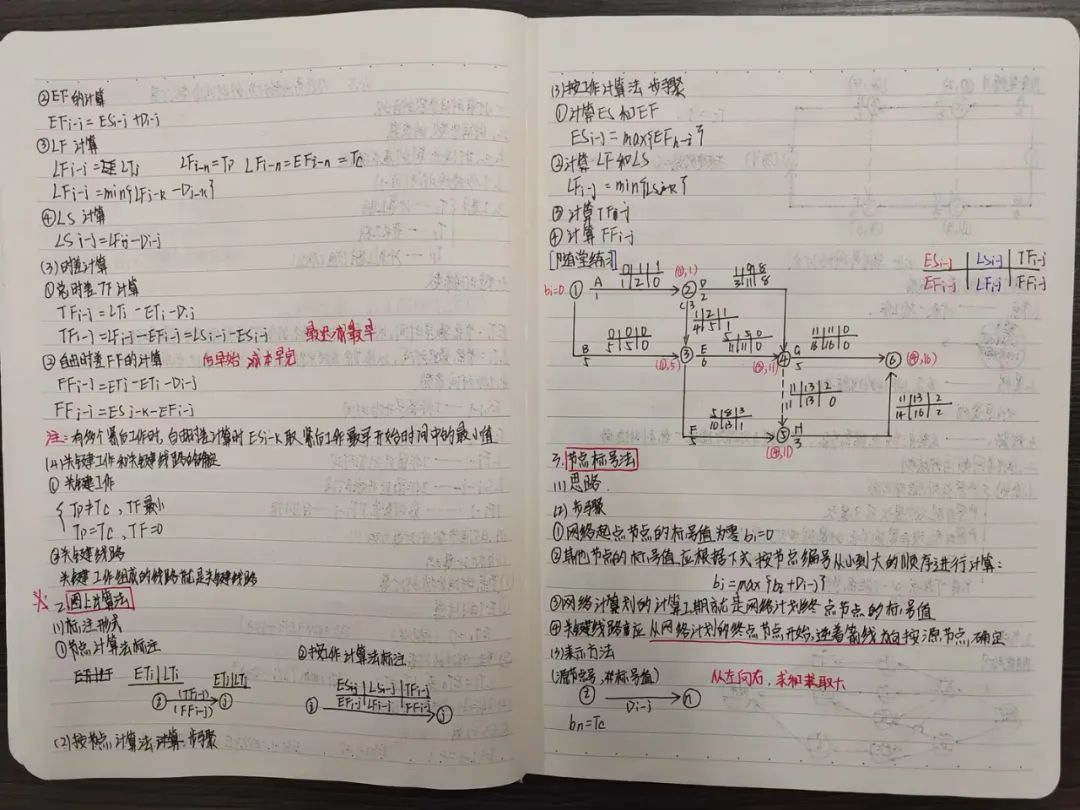 ②EF的计算
EFi-j = ESi-j + Di-j
③LF 计算
LFi-j = LTj LFi-n = Tp LFi-n = EFi-n = Tc
LFi-j = min{LFj-k - Dj-k}
④LS 计算
LSi-j = LFij - Di-j
(3)时差计算
①总时差TF计算
TFi-j = LTj - ETi - Di-j
TFi-j = LFi-j - EFi-j = LSi-j - ESi-j 最迟减最早
②自由时差FF的计算 后早始 减本早完
FFi-j = ETj - ETi - Di-j
FFi-j = ESj-k - EFi-j
注:有多个紧后工作时,自由时差计算时 ESj-k取 紧后工作最早开始时间中的最小值
(4)关键工作和关键线路的确定
① 关键工作
Tp≠Tc,TF最小
Tp=Tc,TF=0
②关键线路
关键工作组成的线路就是关键线路
2.图上计算法
(1)标注形式
①节点计算法标注 ②按工作计算法标注
ETi|LTi ETj|LTj
i (TFi-j) j
(FFi-j)
ESi-j|LSi-j|TFi-j
EFi-j|LFi-j|FFi-j
i j
(2)按节点计算法计算步骤
(3)按工作计算法 步骤
①计算ES和EF
ESi-j = max{EFh-i}
②计算 LF和LS
LFi-j = min{LSj-k}
③计算TFi-j
④计算 FFi-j
[随堂练习]
ESi-j|LSi-j|TFi-j
EFi-j|LFi-j|FFi-j
b1=0 ① A 1 0|1|1 1|2|0 (①,1) ② D 2 11 8
C 3 1|2|1 4|5|1
B 5 0|0|0 5|5|0 (①,5) ③ E 6 5|5|0 11|11|0 (③,11) ④ G 5 11|11|0 16|16|0 ⑥ (④,16)
11|13|2 11|13|0
F 5 5|8|3 10|13|1 ⑤ H 3 11|13|2 14|16|2
(④,11)
3.节点标号法
(1)思路
(2)步骤
①网络起点节点的标号值为零 b1=0
②其他节点的标号值应根据下式按节点编号从小到大的顺序进行计算:
bj = max{bi + Di-j}
③网络计算划的计算工期就是网络计划终点节点的标号值
④关键线路应 从网络计划的终点节点开始,逆着箭线方向按源节点,确定
(3)表示方法
(源节点号,标号值) 从左向右,求和取大
Di-j
bn=Tc